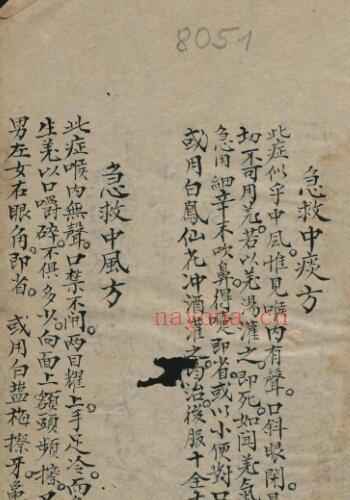 8051
急救中痰方
此症似乎中風。惟見喉内有聲。口斜眼閉。
切不可用羌。若以羌湯灌之。即死。如聞羌氣
急用細辛末吹鼻。得嚏即省。或以小便對口
或用白鳳仙花冲酒灌之。治後服十全
急救中風方
此症喉内無聲。口禁不開。兩目耀上。手足冷。而
生羌以口嚼碎。不俱多少。向面上額頭頻擦。
男左女右眼角即省。 或用白盐梅擦牙
nayona.cn